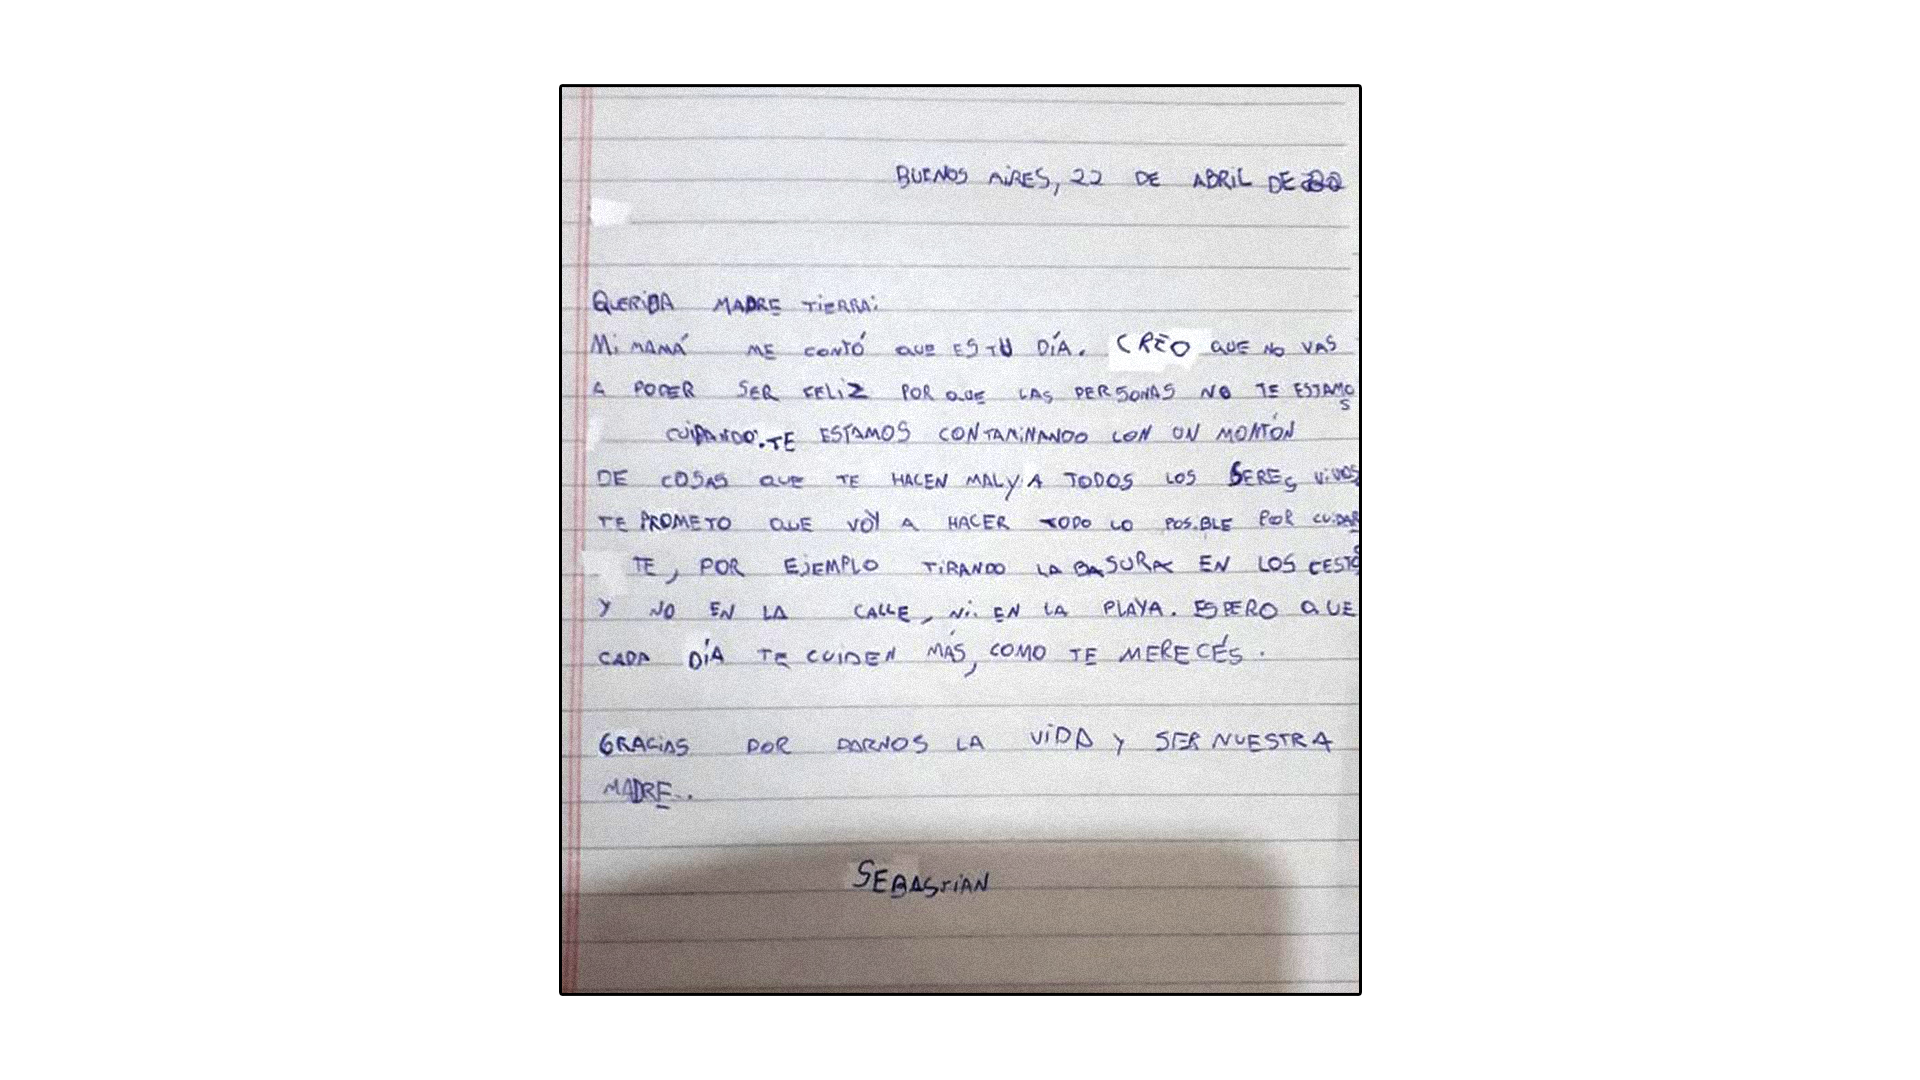 BUENOS AIRES, 22 DE ABRIL DE
QUERIDA MADRE TIERRA:
Mi MAMÁ ME CONTÓ QUE ES TU DÍA. CREO QUE NO VAS
A PODER SER FELIZ POR QUE LAS PERSONAS NO TE ESTAMOS
CUIDANDO. TE ESTAMOS CONTAMINANDO CON UN MONTÓN
DE COSAS QUE TE HACEN MAL Y A TODOS LOS SERES VIVOS
TE PROMETO QUE VOY A HACER TODO LO POSIBLE POR CUIDAR
TE, POR EJEMPLO TIRANDO LA BASURA EN LOS CESTOS
Y NO EN LA CALLE, Ni EN LA PLAYA. ESPERO QUE
CADA DÍA TE CUIDEN MÁS, COMO TE MERECÉS.
GRACIAS POR DARNOS LA VIDA Y SER NUESTRA
MADRE..
SEBASTIAN